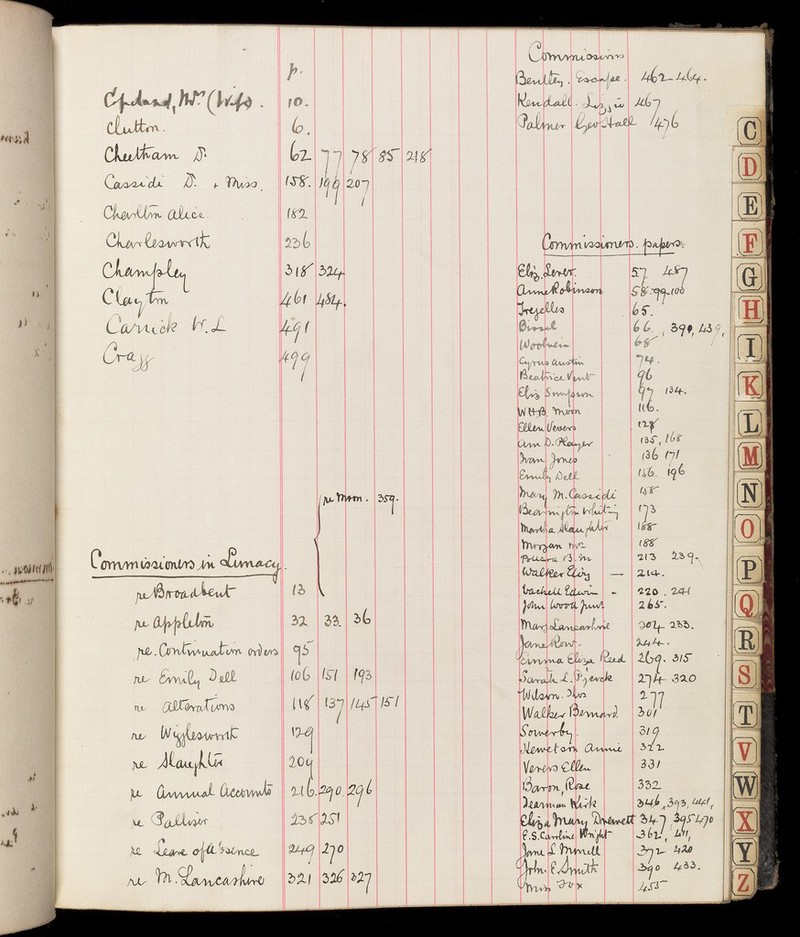 p.
(Wife). 10.
Clutton. 6.
Cheetham Dr. 62 77 78 85 218
Cassidi Dr. & Miss. 158. 199 207
Charlton Alice. 182
Charlesworth 236
Champley 318 324
Clayton 461 484.
Carrick W. L 491
Cragg 499
re Moon. 359.
Commissioners in Lunacy.
re Broadbent 13
re Appleton 32 33. 36
re. Continuation orders 95
re Emily Dell 106 151 193
re Alterations 118 137 145 151
re Wigglesworth 129
re Slaughter 209
re Annual Accounts 216 290 296
re Palliser 235 251
re Leave of Absence 249 270
re M. Lancashire 321 326 327
Commissioners
Bentley. Escape. 462-464.
Kendall. Lizzie 467
Palmer Geo Hall 476
Commissioners. papers.
Eliz. 57 487
Anne Robinson 58.99.100
Tregelles 65.
66, 390, 439,
68
Cyrus Austin 74.
Beatrice Vint 96
Eliz Simpson 97 134.
W H B. Moon 116.
Ellen Vevers 128
Ann D. Player 135, 168
Jones 136 171
Emily Dell 186. 196
Mary M. Cassidi 158
173
Martha Slaughter 188
Morgan 188
213 239.
Walker Eliz — 214.
Vachell Edwin - 220. 241
John Wood Junr 265.
Mary Lancashire 204 233.
Jane Row. 244.
Emma Eliza Reed 269. 315
Sarah L. 274 320
Wilson. 277
Walker Bernard. 301
Sowerby. 319
Hewetson Annie 322
Vevers Ellen 331
Baron, Rose 332
Kirk 346, 393, 441,
Eliza Mary Drewett 347 395 470
E. S. Caroline Wright 362, 411,
Jane L. 372 420
John. E. Smith 390 433.
Miss Fox 455
C
D
E
F
G
H
I
K
L
M
N
O
P
Q
R
S
T
V
W
X
Y
Z